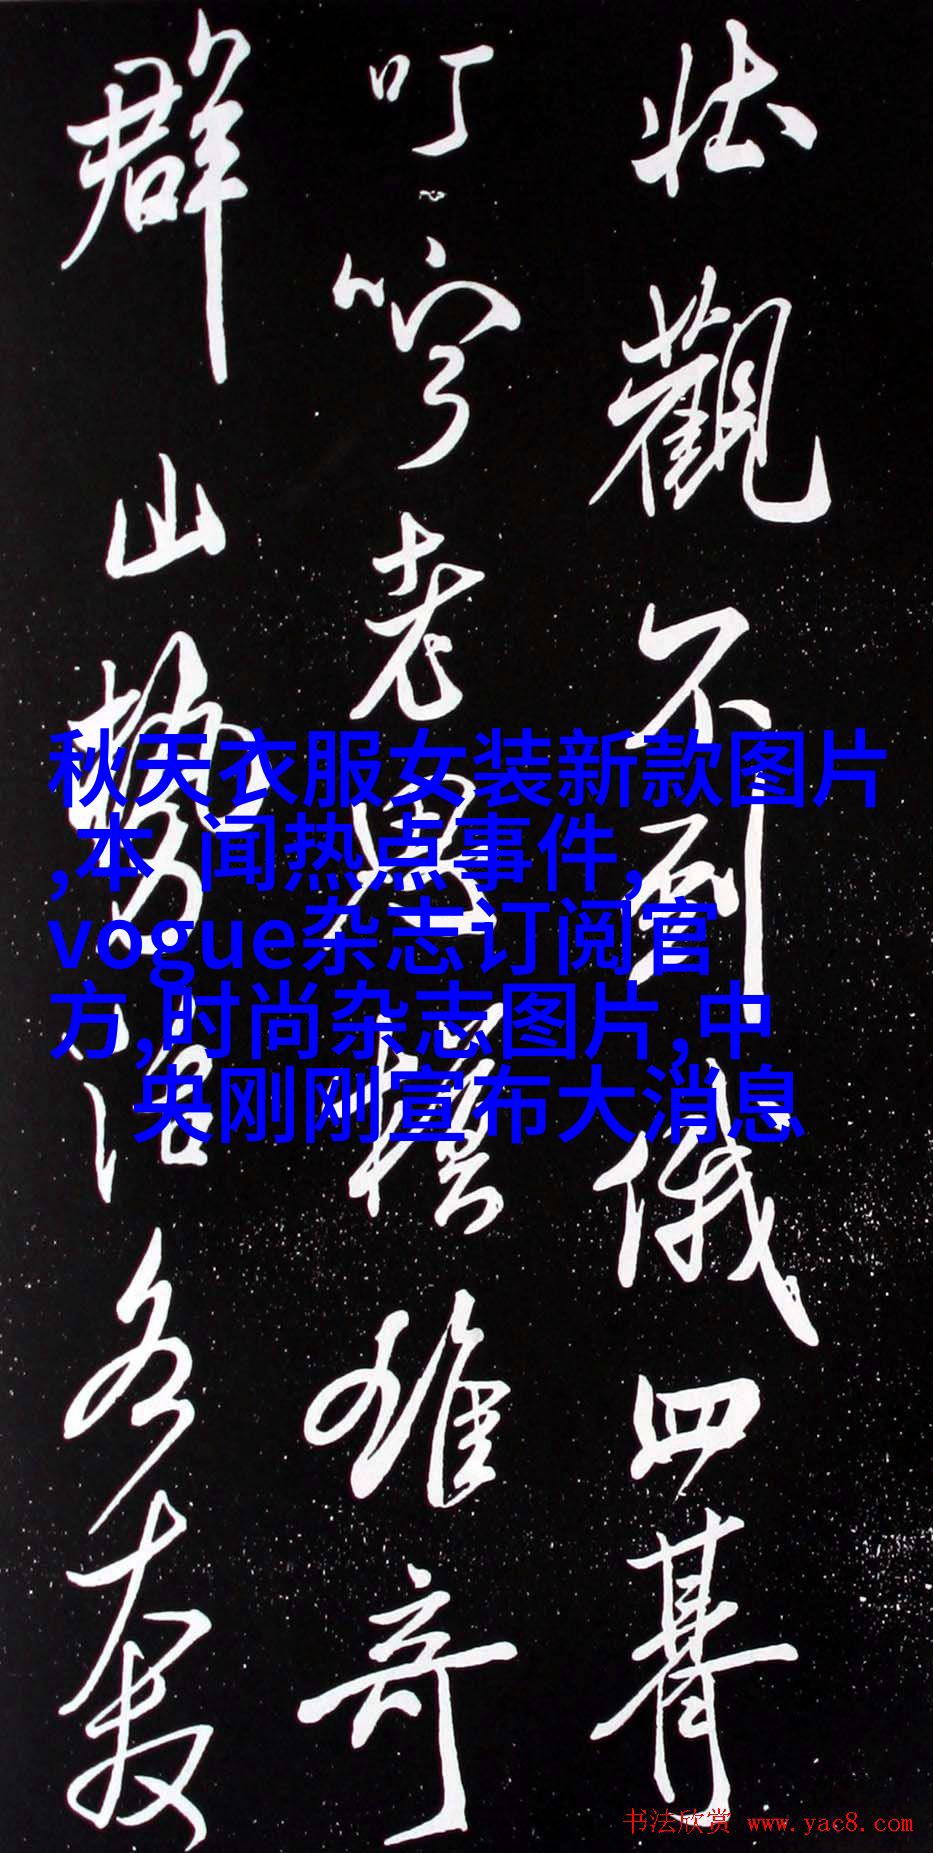 壮觀不到俄四朞
叮嚀老雄奇
群山勢
秋天衣服女装新款图片
,本 闻热点事件,
vogue杂志订阅官
方,时尚杂志图片,中
央刚刚宣布大消息
书法欣赏 www.yac8.com